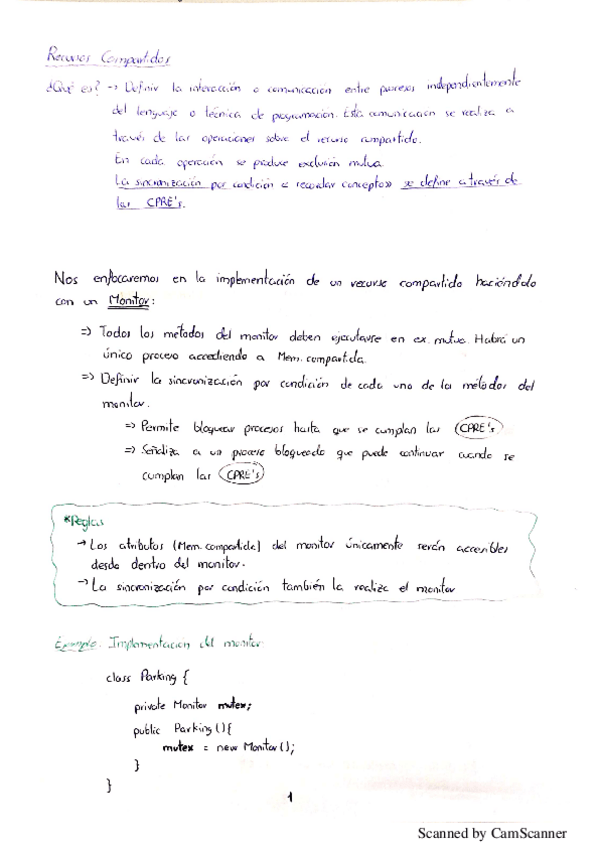 Recursos Compartidos
¿Qué es? → Definir la interacción o comunicación entre procesos independientemente
del lenguaje o técnica de programación. Esta comunicación se realiza a
través de las operaciones sobre el recurso compartido.
En cada operación se produce exclusión mutua.
La sincronización por condición « recordar concepto» se define a través de
las CPRE's.
Nos enfocaremos en la implementación de un recurso compartido haciéndolo
con un Monitor:
⇒ Todos los métodos del monitor deben ejecutarse en ex. mutua. Habrá un
único proceso accediendo a Mem. compartida.
⇒ Definir la sincronización por condición de cada uno de los métodos del
monitor.
⇒ Permite bloquear procesos hasta que se cumplan las CPRE's
⇒ Señaliza a un proceso bloqueado que puede continuar cuando se
cumplan las CPRE's
*Reglas
→ Los atributos (Mem. compartida) del monitor únicamente serán accesibles
desde dentro del monitor.
→ La sincronización por condición también la realiza el monitor
Ejemplo. Implementación del monitor.
class Parking {
private Monitor mutex;
public Parking(){
mutex = new Monitor();
}
}
1
Scanned by CamScanner